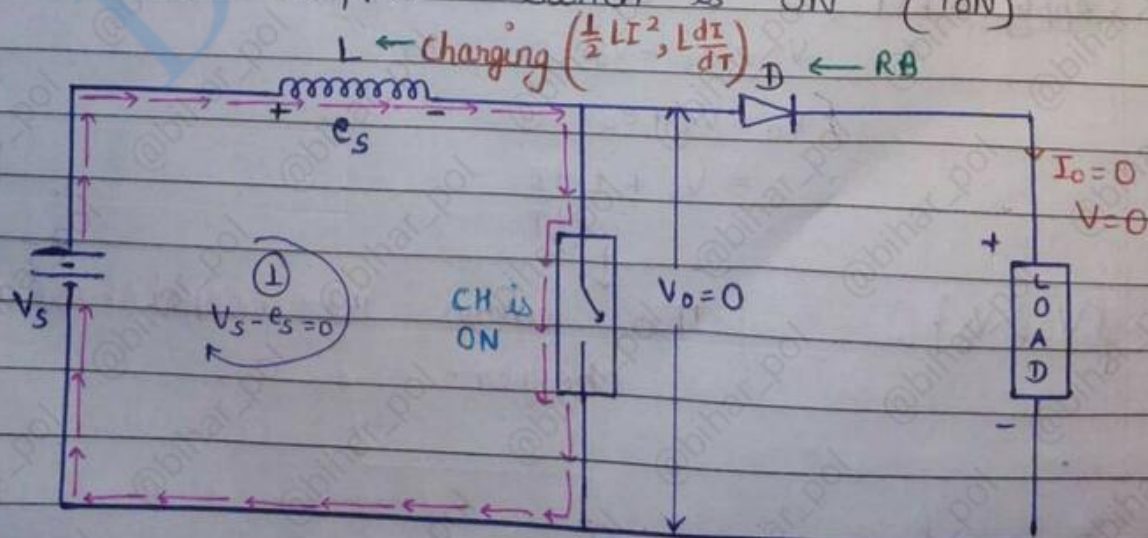 is ON (TON)
L ← Charging (½ LI², L dI/dT) D ← RB
+ es -
I₀=0
V=0
①
Vs - es = 0
Vs
CH is
ON
V₀ = 0
+
LOAD
-
@bihar_pol